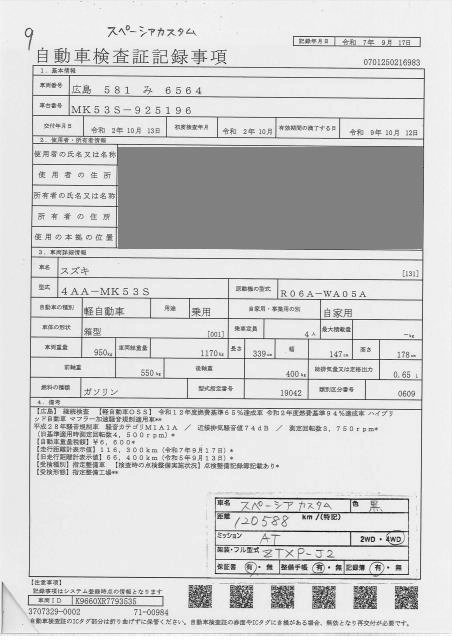 9 スペーシアカスタム
記録年月日 令和 7年 9月 17日
自動車検査証記録事項 0701250216983
1. 基本情報
車両番号 広島 581 み 6564
車台番号 MK53S-925196
交付年月日 令和 2年 10月 13日 初度検査年月 令和 2年 10月 有効期間の満了する日 令和 9年 10月 12日
2. 使用者・所有者情報
使用者の氏名又は名称
使用者の住所
所有者の氏名又は名称
所有者の住所
使用の本拠の位置
3. 車両詳細情報
車名 スズキ [131]
型式 4AA-MK53S 原動機の型式 R06A-WA05A
自動車の種別 軽自動車 用途 乗用 自家用・事業用の別 自家用
車体の形状 箱型 [001] 乗車定員 4人 最大積載量 -kg
車両重量 950kg 車両総重量 1170kg 長さ 339cm 幅 147cm 高さ 178cm
前軸重 550kg 後軸重 400kg 総排気量又は定格出力 0.65L
燃料の種類 ガソリン 型式指定番号 19042 類別区分番号 0609
4. 備考
【広島】 継続検査 【軽自動車OSS】 令和12年度燃費基準65%達成車 令和2年度燃費基準94%達成車 ハイブリ
ッド自動車 マフラー加速騒音規制適用車**
平成28年騒音規制車 騒音カテゴリM1A1A / 近接排気騒音値74dB / 測定回転数3,750rpm*
(旧基準適用時測定回転数4,500rpm)*
【自動車重量税額】¥6,600*
【走行距離計表示値】116,300km (令和7年9月17日)*
【旧走行距離計表示値】66,400km (令和5年9月13日)*
【受検種別】指定整備車 【検査時の点検整備実施状況】点検整備記録簿記載あり*
【受検形態】指定整備工場**
車名 スペーシアカスタム 色 黒
距離 120588 km /(特記)
ミッション AT 2WD・4WD
架装・フル型式 ZTXP-J2
保証書 有・無 整備手帳 有・無 記録簿 有・無
【注意事項】
記録事項はシステム登録時点の情報となります
車両ID K9660XR7793535
3707329-0002 71-00984
自動車検査証のICタグ部分は折り曲げずに保管ください。自動車検査証の券面やICタグにき損がある場合、無効となり再交付が必要です。